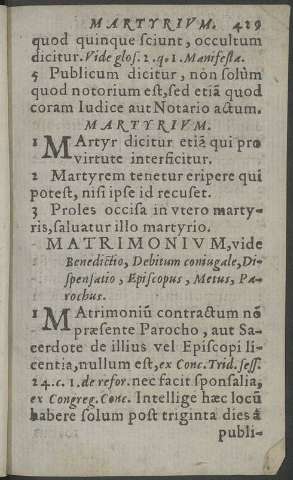 MARTYRIVM. 429
quod quinque sciunt, occultum
dicitur. Vide glos. 2. q. 1. Manifesta.
5 Publicum dicitur, nòn solùm
quod notorium est, sed etiã quod
coram Iudice aut Notario actum.
MARTYRIVM.
1 MArtyr dicitur etiã qui pro
virtute interficitur.
2 Martyrem tenetur eripere qui
potest, nisi ipse id recuset.
3 Proles occisa in vtero marty-
ris, saluatur illo martyrio.
MATRIMONIVM, vide
Benedictio, Debitum coniugale, Di-
spensatio, Episcopus, Metus, Pa-
rochus.
1 MAtrimoniũ contractum nõ
præsente Parocho, aut Sa-
cerdote de illius vel Episcopi li-
centia, nullum est, ex Conc. Trid. sess.
24. c. 1. de refor. nec facit sponsalia,
ex Congreg. Conc. Intellige hæc locũ
habere solum post triginta dies à
publi-